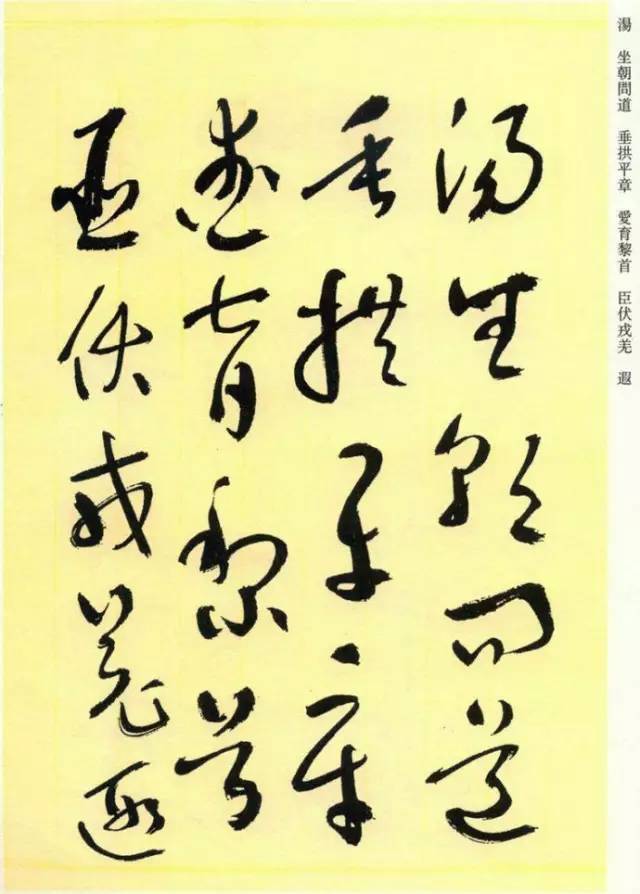 湯 坐朝問道 垂拱平章 愛育黎首 臣伏戎羌 遐
湯坐朝問道
垂拱平章
愛育黎首
臣伏戎羌遐